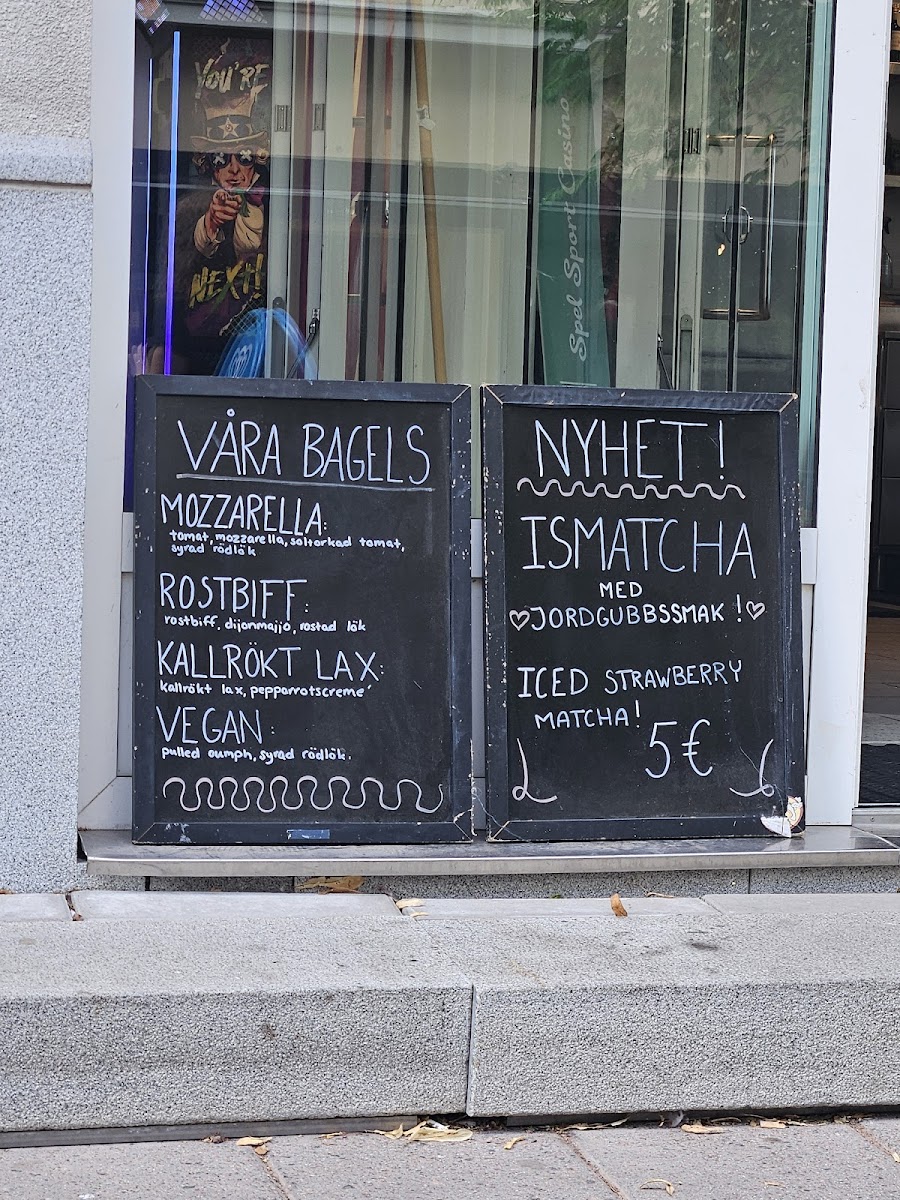 YOU'RE
NEXT!
Spel Sport Casino
VÅRA BAGELS
MOZZARELLA:
tomat, mozzarella, soltorkad tomat,
syrad rödlök
ROSTBIFF:
rostbiff, dijonmajjo, rostad lök
KALLRÖKT LAX:
kallrökt lax, pepparrotscreme´
VEGAN:
pulled oumph, syrad rödlök.
NYHET!
ISMATCHA
MED
♡JORDGUBBSSMAK!♡
ICED STRAWBERRY
MATCHA!
5€